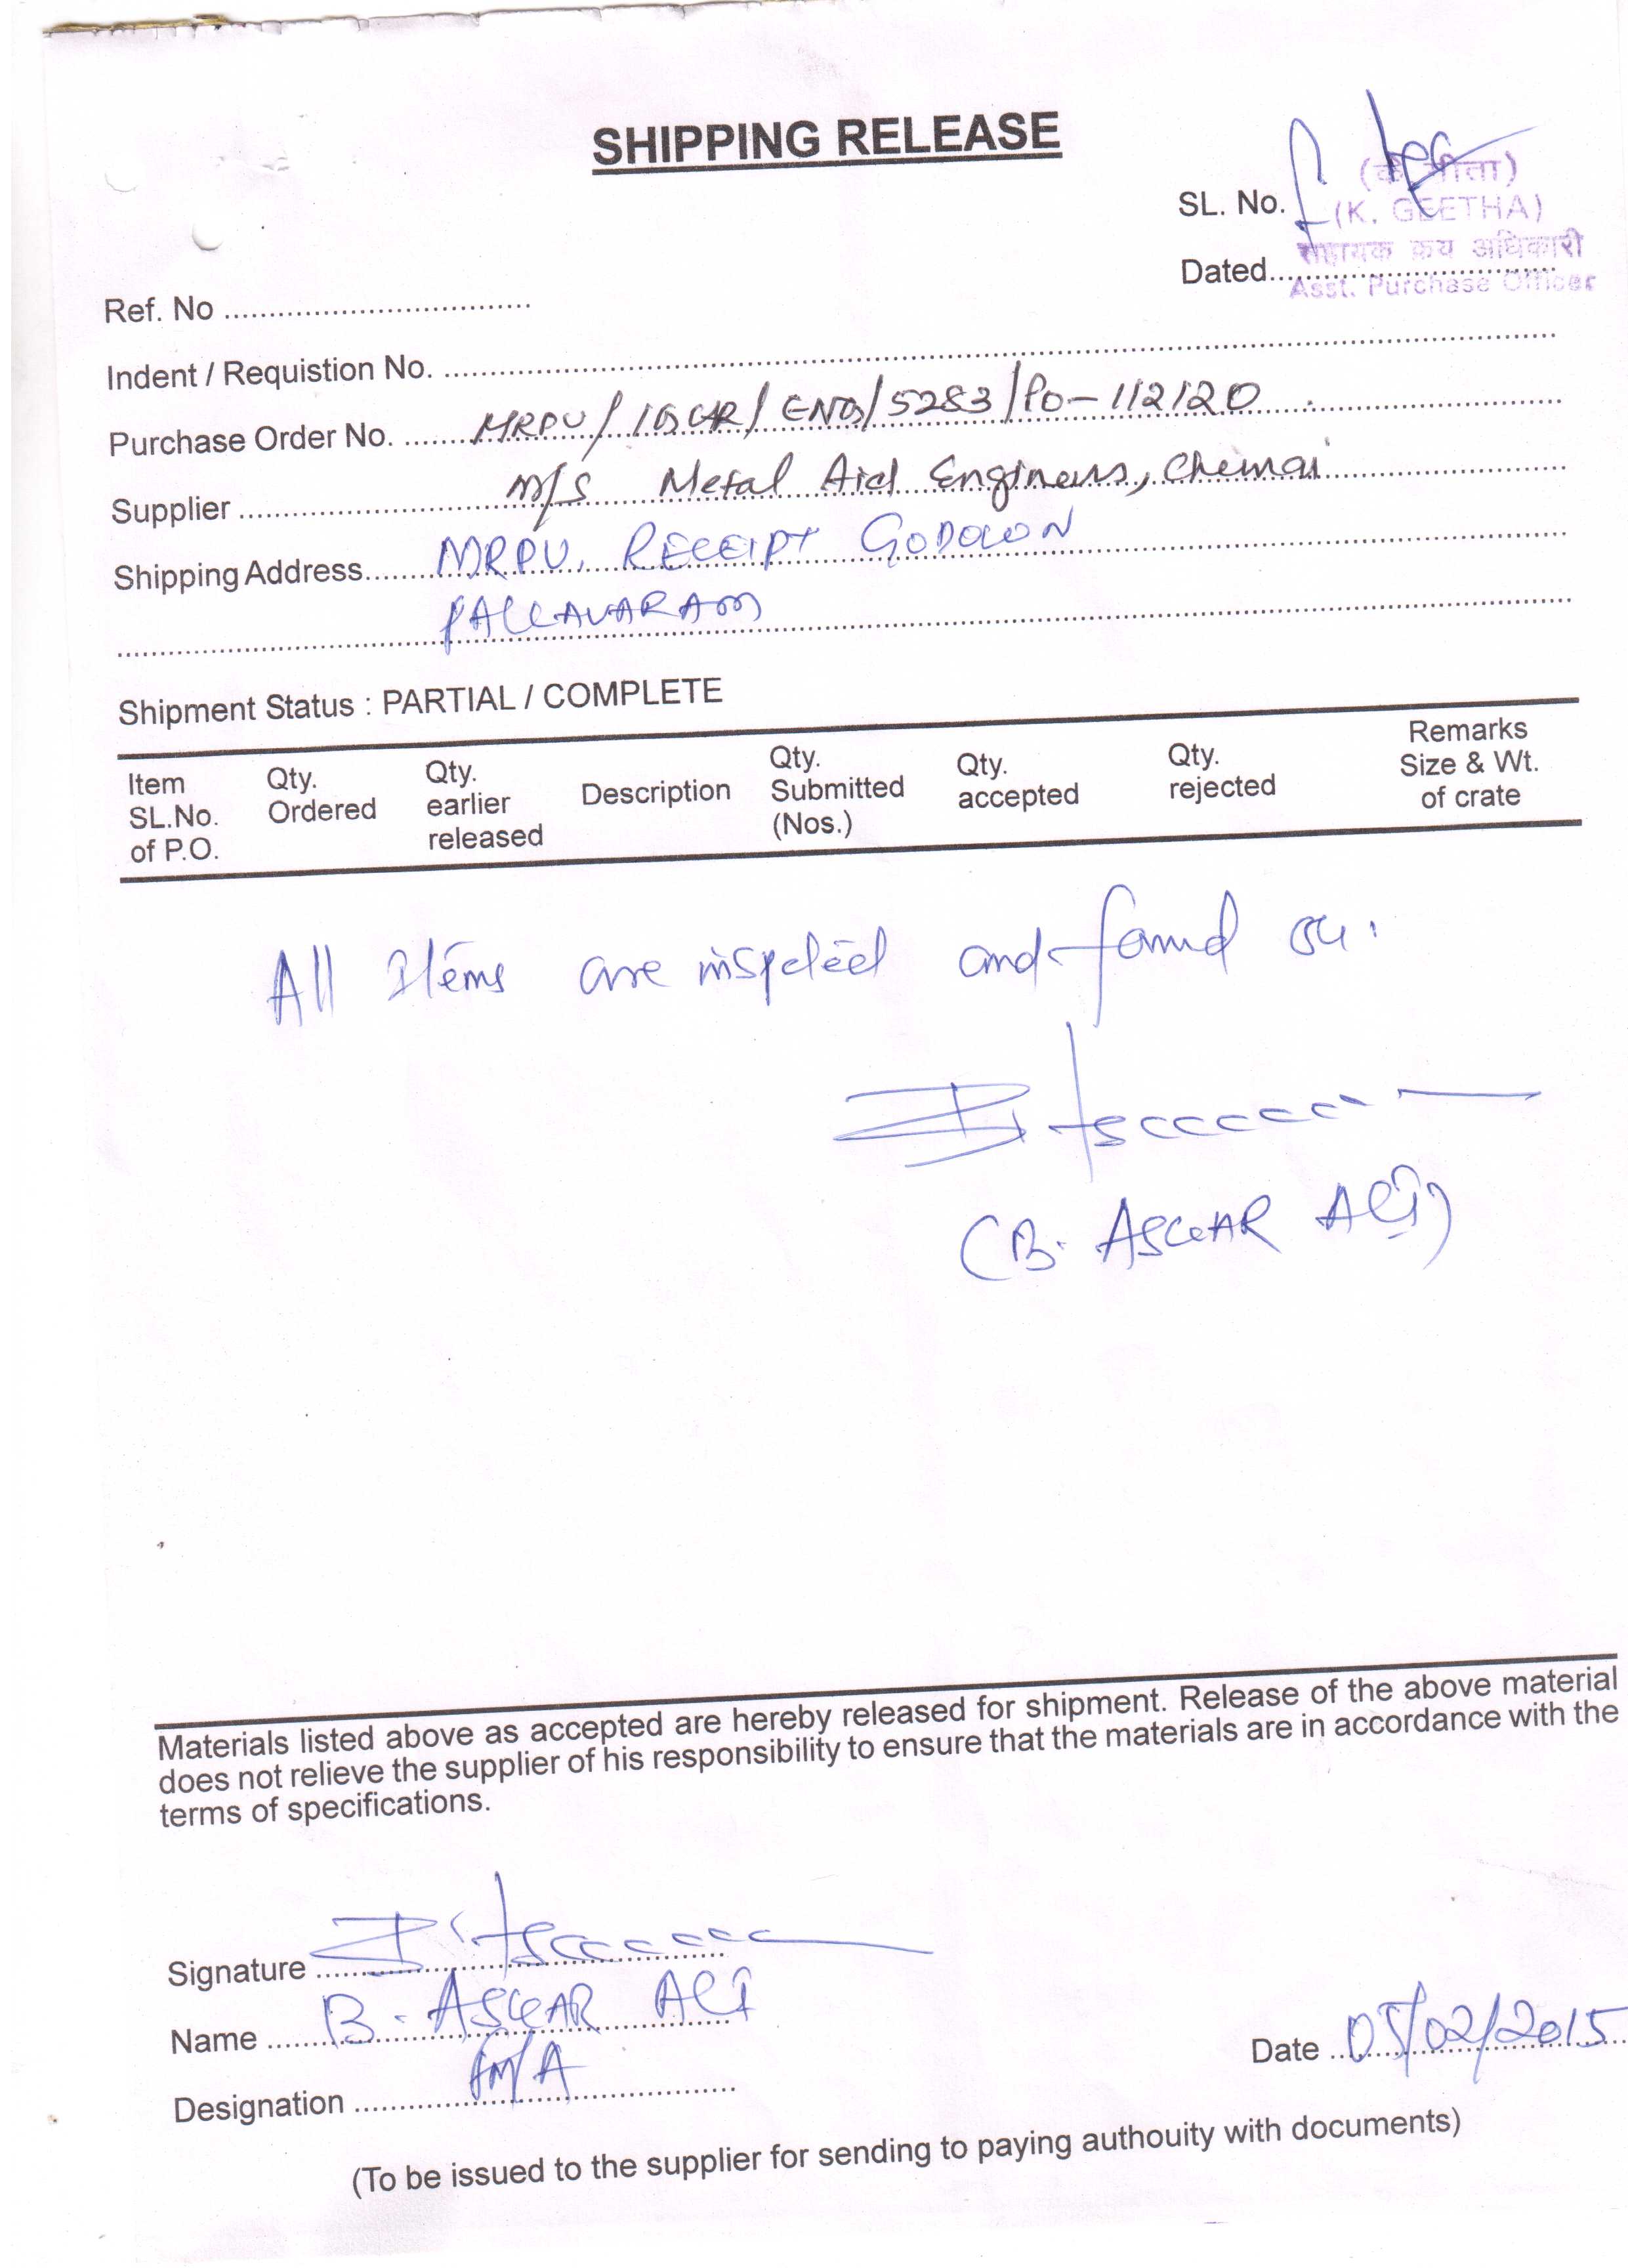 SHIPPING RELEASE
SL. No.
(के गीता)
(K. GEETHA)
सहायक क्रय अधिकारी
Dated..................................
Asst. Purchase Officer
Ref. No ..................................
Indent / Requistion No. ..................................
Purchase Order No. MRPU/IGCAR/ENG/5283/PO-112120
Supplier M/S Metal Aid Engineers, Chennai
Shipping Address MRPU. RECEIPT GODOWN
PALLAVARAM
Shipment Status : PARTIAL / COMPLETE
Item SL.No. of P.O. Qty. Ordered Qty. earlier released Description Qty. Submitted (Nos.) Qty. accepted Qty. rejected Remarks Size & Wt. of crate
All Items are inspected and found ok.
(B. ASGAR ALI)
Materials listed above as accepted are hereby released for shipment. Release of the above material
does not relieve the supplier of his responsibility to ensure that the materials are in accordance with the
terms of specifications.
Signature
Name B. ASGAR ALI
Designation F/M/A
Date 05/02/2015
(To be issued to the supplier for sending to paying authouity with documents)